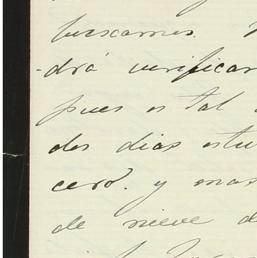 buscamos.
-drá verificar
pues es tal
dos dias estu
cero. y mas
de nieve d